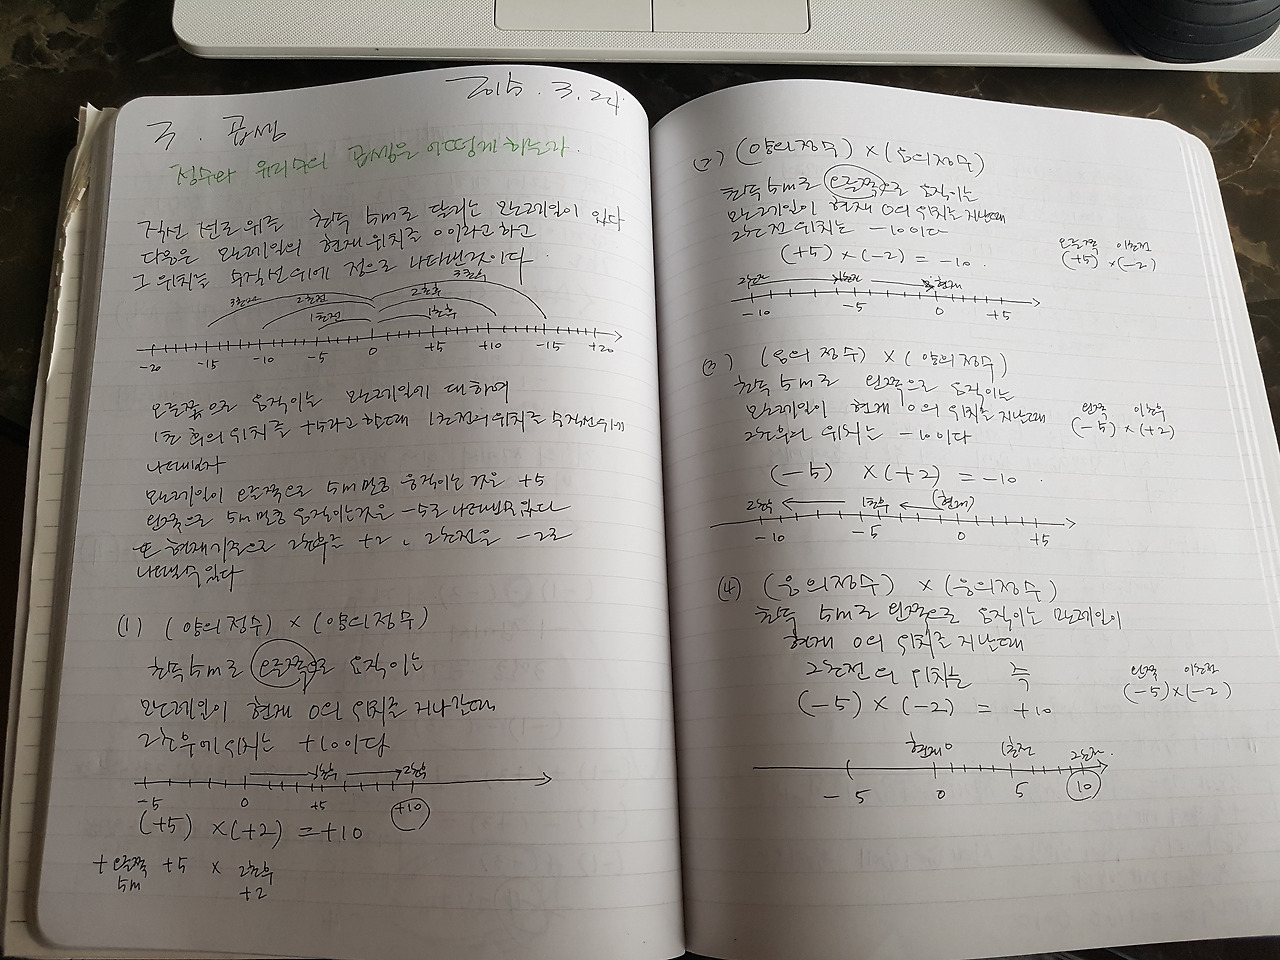 2015. 3. 24.
3. 곱셈
정수와 유리수의 곱셈은 어떻게 하는가.
직선 선로 위를 초속 5m로 달리는 모노레일이 있다
다음은 모노레일의 현재 위치를 0이라고 하고
그 위치를 수직선 위에 점으로 나타낸것이다.
3초전 2초전 2초후 3초후
1초전 1초후
-20 -15 -10 -5 0 +5 +10 -15 +20
오른쪽으로 움직이는 모노레일에 대하여
1초 후의 위치를 +5라고 할때 1초전의 위치를 수직선위에
나타내보자
모노레일이 오른쪽으로 5m만큼 움직이는 것은 +5
왼쪽으로 5m만큼 움직이는것은 -5로 나타낼수있다
또 현재기준으로 2초후를 +2, 2초전을 -2로
나타낼수있다
(1) (양의정수) × (양의정수)
초속 5m로 오른쪽으로 움직이는
모노레일이 현재 0의 위치를 지나갈때
2초후에 위치는 +10이다
1초후 2초후
-5 0 +5 +10
(+5) ×(+2) = +10
+ 오른쪽 +5 × 2초후
5m +2
(2) (양의정수) × (음의정수)
초속 5m로 오른쪽으로 움직이는
모노레일이 현재 0의 위치를 지날때
2초전 위치는 -10이다
오른쪽 2초전
(+5) ×(-2)
(+5) × (-2) = -10.
2초전 1초전 현재
-10 -5 0 +5
(3) (음의 정수) × (양의정수)
초속 5m로 왼쪽으로 움직이는
모노레일이 현재 0의 위치를 지날때
2초후의 위치는 -10이다
왼쪽 2초후
(-5) × (+2)
(-5) ×(+2) = -10.
2초후 1초후 (현재)
-10 -5 0 +5
(4) (음의정수) × (음의정수)
초속 5m로 왼쪽으로 움직이는 모노레일이
현재 0의 위치를 지날때
2초전의 위치는 즉
왼쪽 2초전
(-5)×(-2)
(-5) × (-2) = +10
현재0 1초전 2초전.
-5 0 5 10